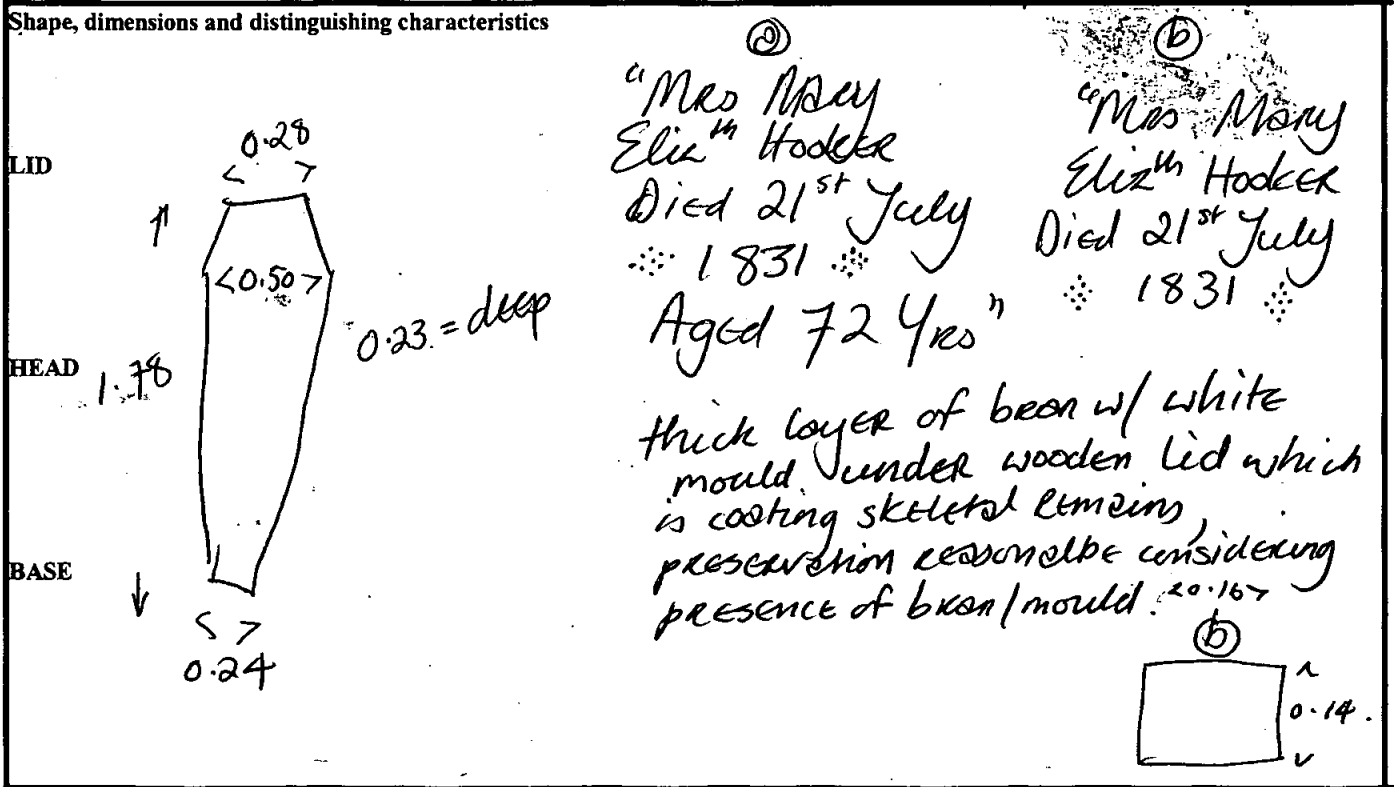 Shape, dimensions and distinguishing characteristics
LID
HEAD
BASE
0.28
< >
<0.50>
0.23 = deep
1.78
< >
0.24
a
"Mrs Mary
Elizth Hooker
Died 21st July
1831
Aged 72 Yrs"
b
"Mrs Mary
Elizth Hooker
Died 21st July
1831
thick layer of bran w/ white
mould under wooden lid which
is coating skeletal remains,
preservation reasonalbe considering
presence of bran/mould.
<0.16>
b
0.14.